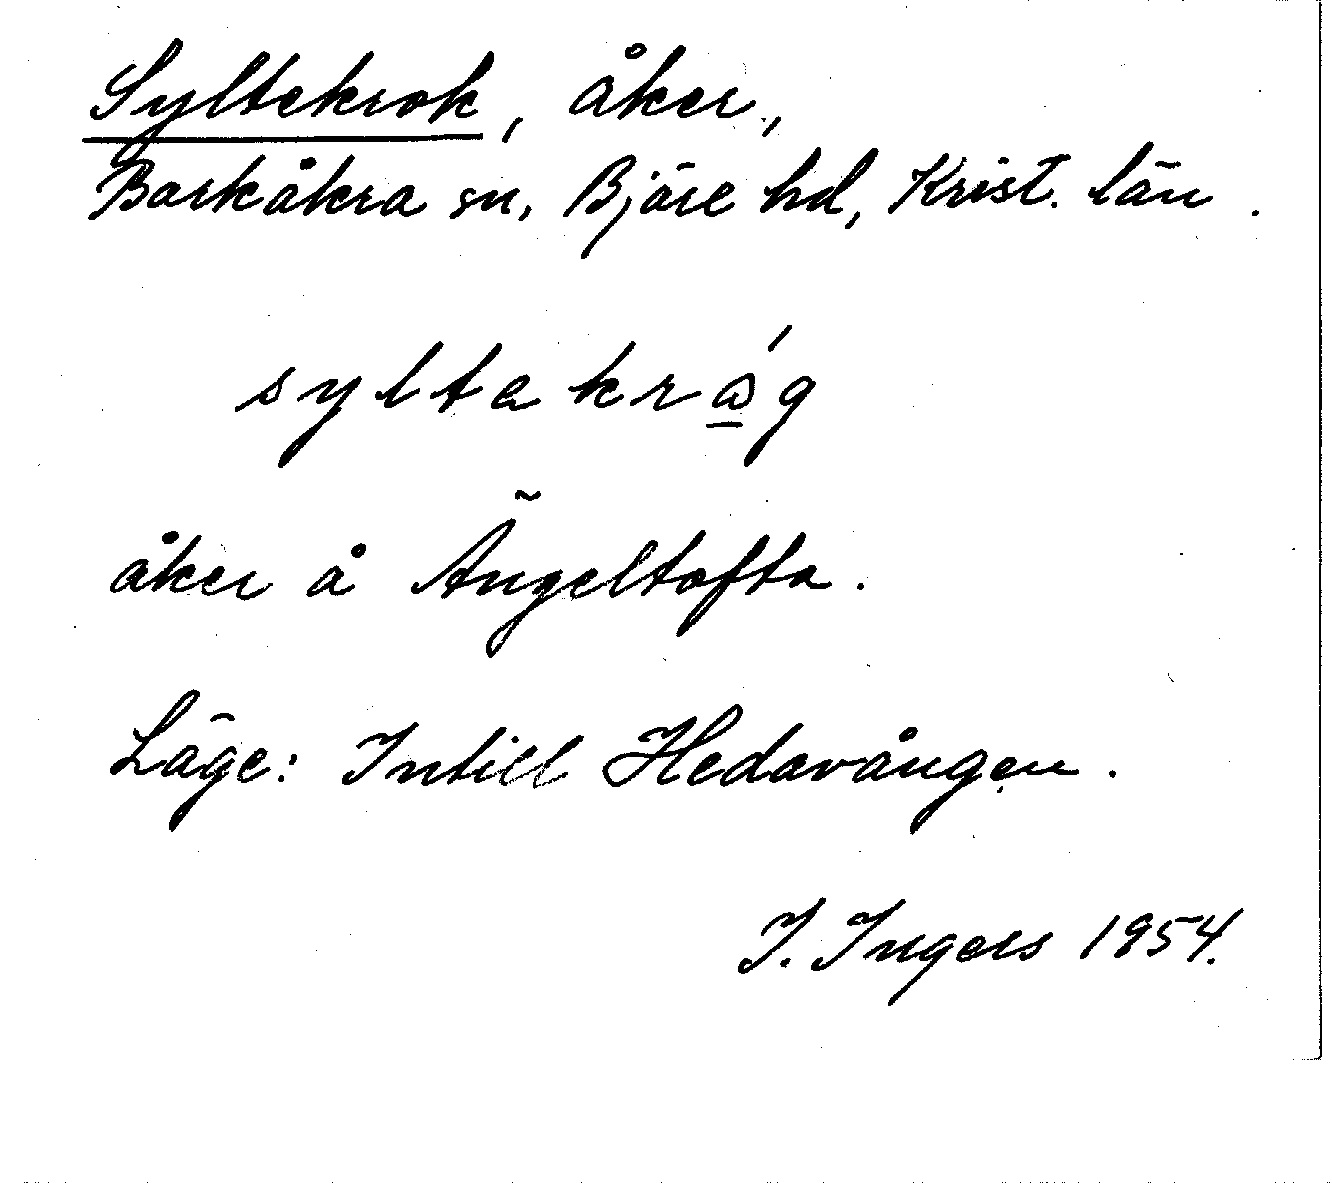 Syltekrok, åker,
Barkåkra sn, Bjäre hd, Krist. län.
syltakrǻ̱g
åker å Ängeltofta.
Läge: Intill Hedavången.
I. Ingers 1954.